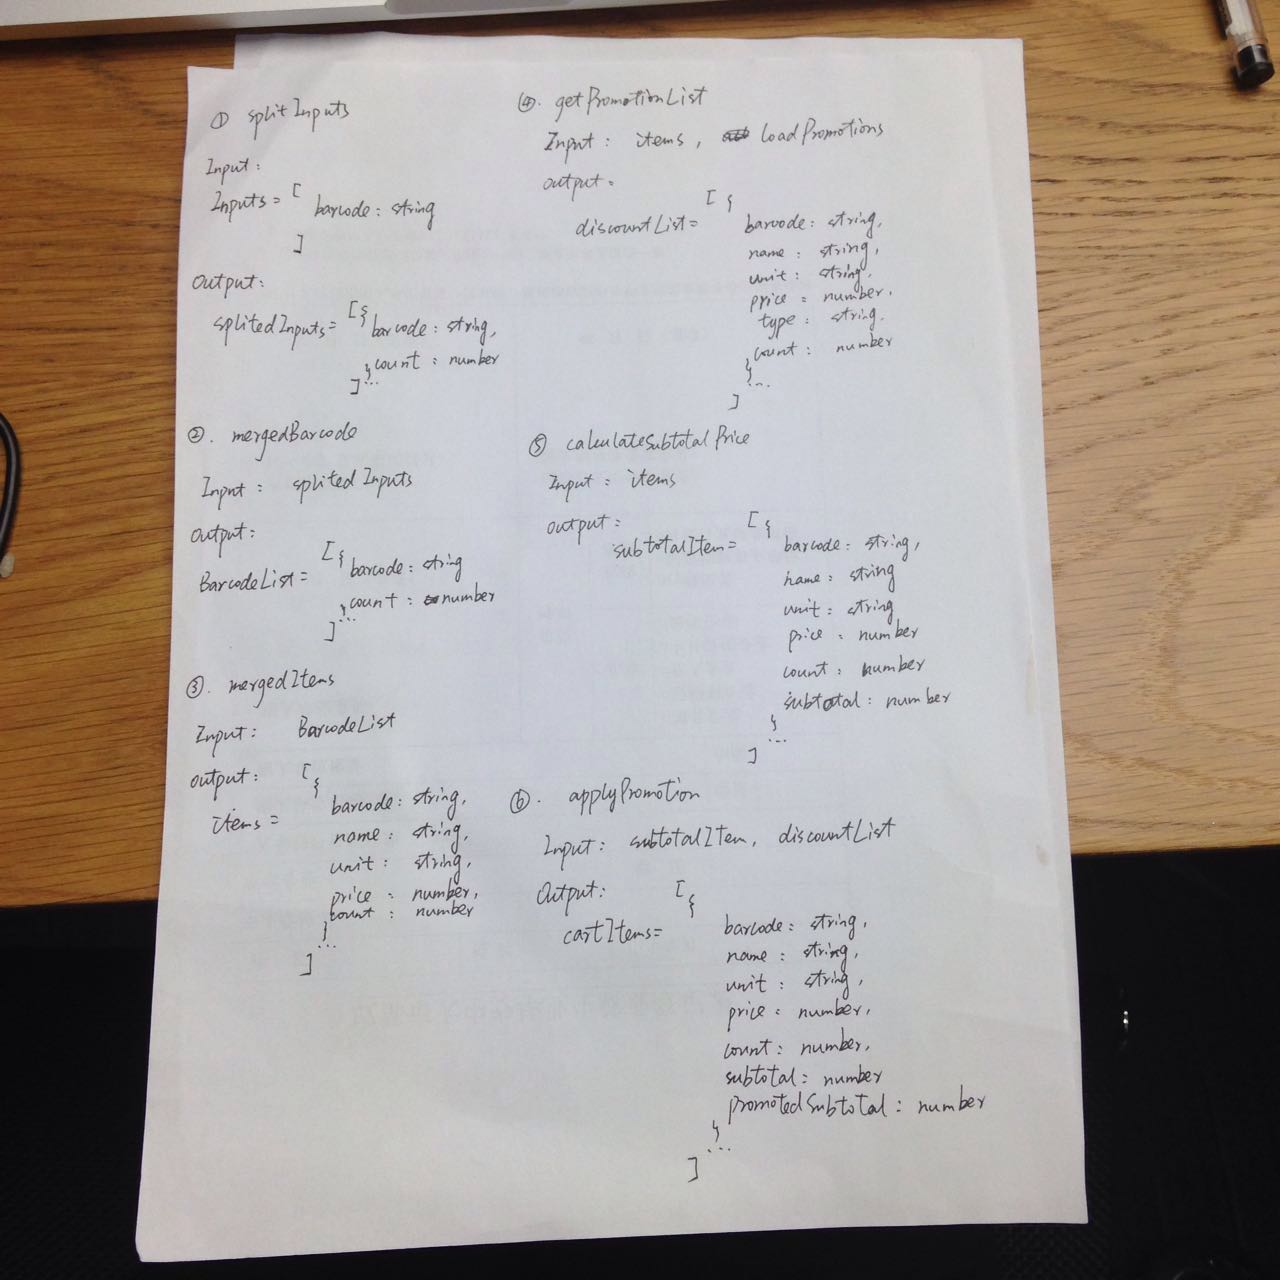 ① splitInputs
Input:
Inputs = [
barcode: string
]
Output:
splitedInputs = [{ barcode: string,
count: number
}...
]
②. mergedBarcode
Input: splitedInputs
Output:
BarcodeList = [{ barcode: string
count: number
}...
]
③. mergedItems
Input: BarcodeList
output: [{
items =
barcode: string,
name: string,
unit: string,
price: number,
count: number
}
...
]
④. getPromotionList
Input: items, loadPromotions
output:
discountList = [{
barcode: string,
name: string,
unit: string,
price = number,
type: string,
count: number
}
...
]
⑤ calculateSubtotalPrice
Input: items
output:
subtotalItem = [{
barcode: string,
name: string
unit: string
price: number
count: number
subtotal: number
}
...
]
⑥. applyPromotion
Input: subtotalItem, discountList
Output: [{
cartItems =
barcode: string,
name: string,
unit: string,
price: number,
count: number,
subtotal: number
promotedSubtotal: number
}
...
]